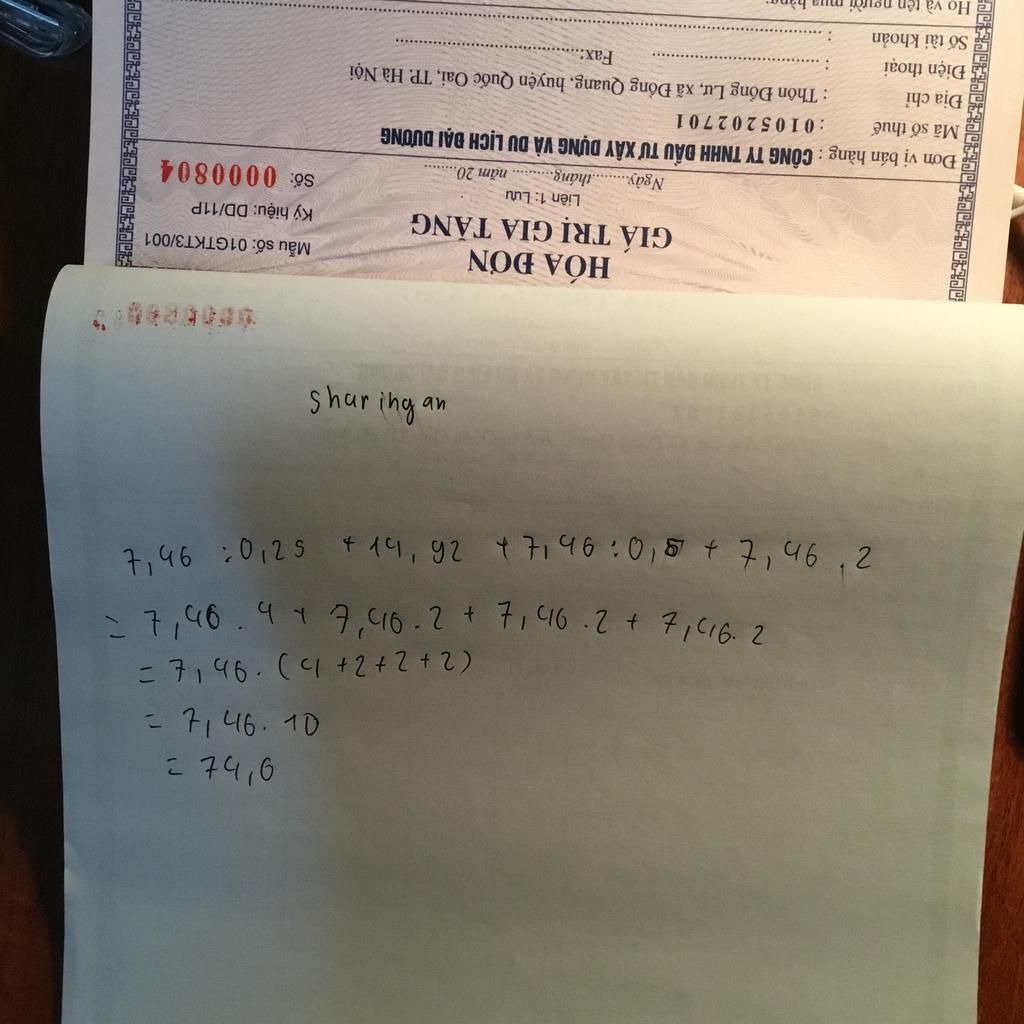 HÓA ĐƠN
GIÁ TRỊ GIA TĂNG
Liên 1: Lưu
Ngày.........tháng.........năm 20......
Mẫu số: 01GTKT3/001
Ký hiệu: DD/11P
Số: 0000804
Đơn vị bán hàng : CÔNG TY TNHH ĐẦU TƯ XÂY DỰNG VÀ DU LỊCH ĐẠI DƯƠNG
Mã số thuế : 0105202701
Địa chỉ : Thôn Đông Lư, xã Đồng Quang, huyện Quốc Oai, TP. Hà Nội
Điện thoại : .................................... Fax:....................................
Số tài khoản : ....................................
Họ và tên người mua hàng:
sharingan
7,46 :0,25 + 14,92 + 7,46:0,5 + 7,46 . 2
= 7,46 . 4 + 7,46 . 2 + 7,46 . 2 + 7,46. 2
= 7,46. (4 +2+2+2)
= 7,46. 10
= 74,6